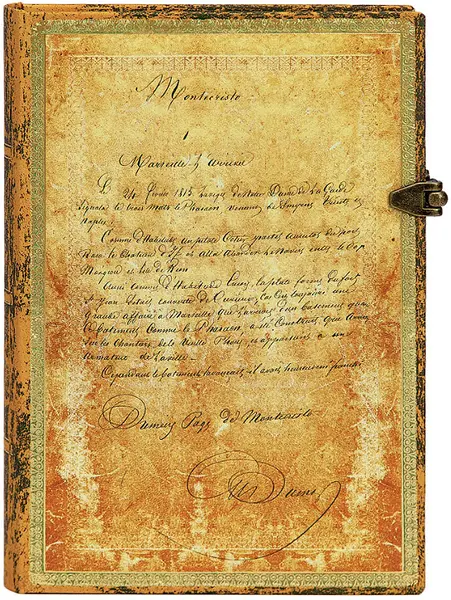 Montecristo
1
Marseille L'arrivée
Le 24 fevrier 1815 la vigie de Notre Dame de la Garde
Signala le trois mats le Pharaon venant de Smyrne Trieste et
Naples
Comme d'habitude un pilote Cotier partit aussitot du port
Rasa le Chateau d'If et alla aborder le Navire entre le Cap
Morgion et l'ile de Rion
Aussi comme d'habitude la plate forme du fort
St Jean s'etait couverte de Curieux Car C'est toujours une
Grande affaire à Marseille que l'arrivée d'un batiment quand
Ce batiment Comme le Pharaon a été Construit Gréé Arrimé
sur les Chantiers de la Vieille Phocée, et appartient a un
Armateur de la ville –
Cependant le batiment s'avançait, il avait heureusement franchi
Dumas Page de Montecristo
Alex Dumas